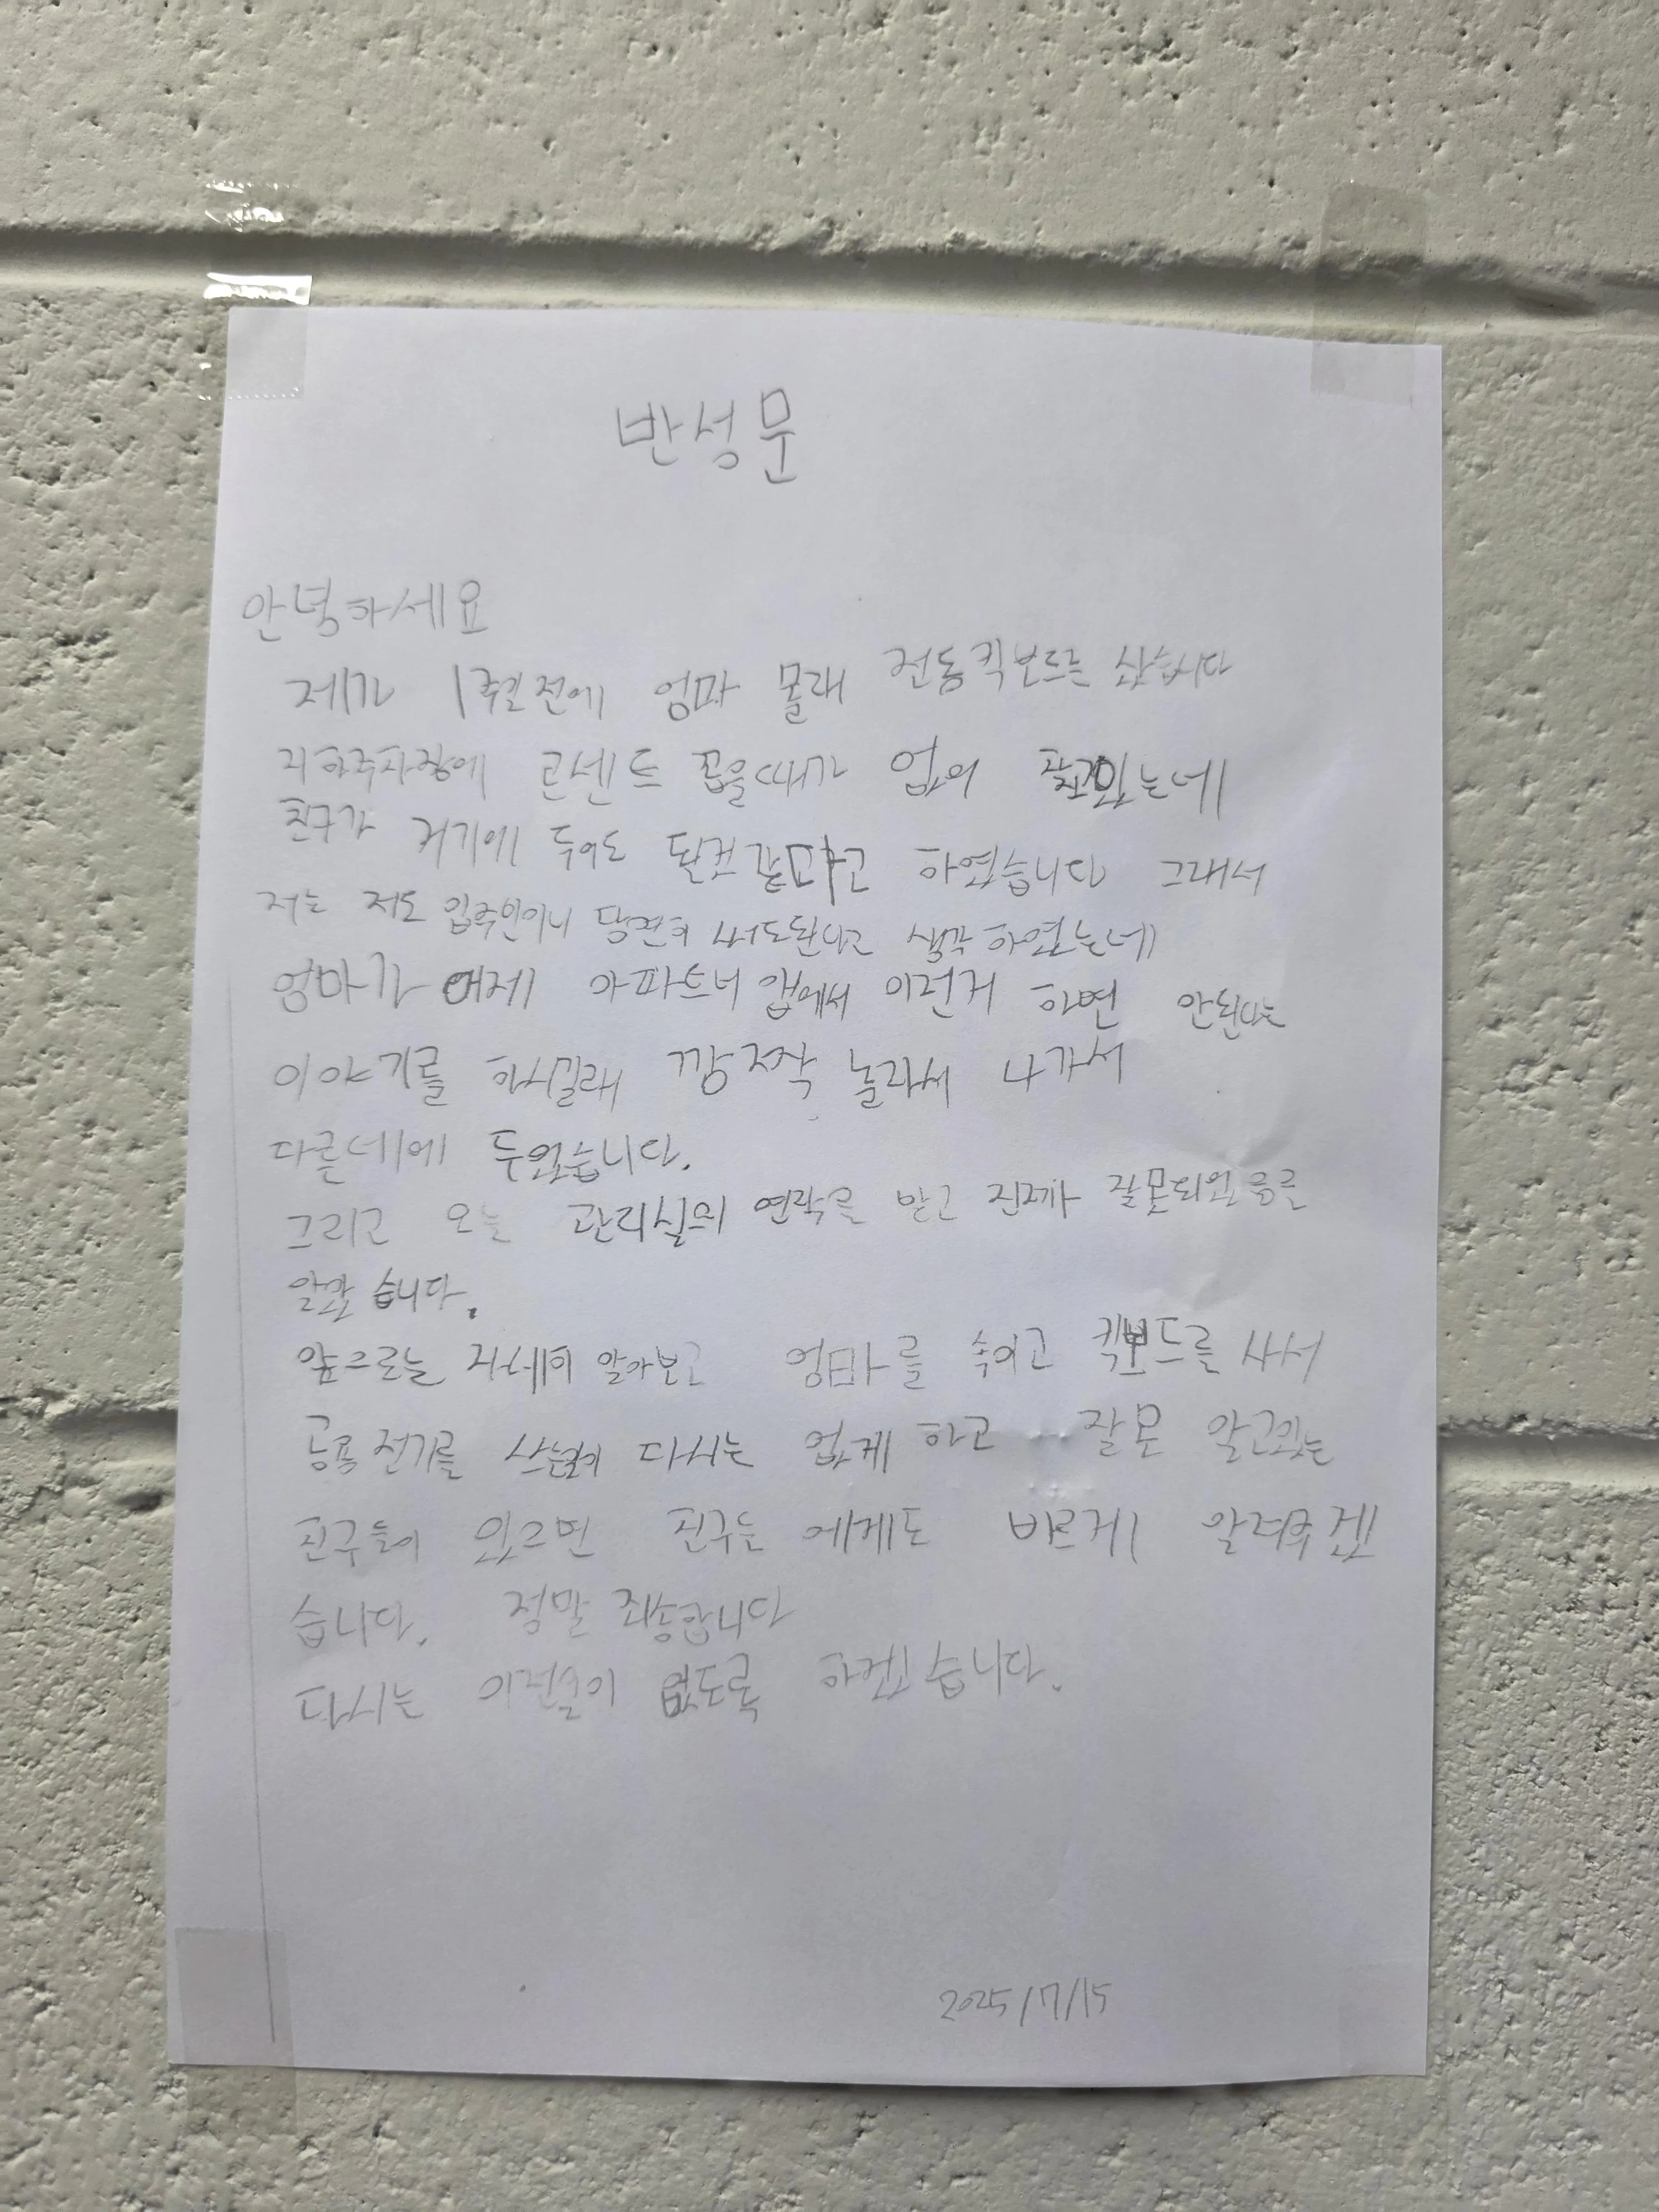 반성문
안녕하세요
제가 1주일전에 엄마 몰래 전동킥보드를 샀습니다
지하주차장에 콘센트 꼽을때가 없어 찾고있는데
친구가 거기에 두어도 된다고 하였습니다 그래서
저는 저도 입주민이니 당연히 써도된다고 생각 하였는데
엄마가 어제 아파트너 앱에서 이런거 하면 안된다는
이야기를 하시길래 깜짝 놀라서 나가서
다른데에 두었습니다.
그리고 오늘 관리실의 연락을 받고 진짜가 잘못되었음을
알았습니다.
앞으로는 자세히 알아보고 엄마를 속이고 킥보드를 사서
공용전기를 쓰는일이 다시는 없게 하고 잘못 알고있는
친구들이 있으면 친구들에게도 바르게 알려주겠
습니다. 정말 죄송합니다
다시는 이런일이 없도록 하겠습니다.
2025/7/15